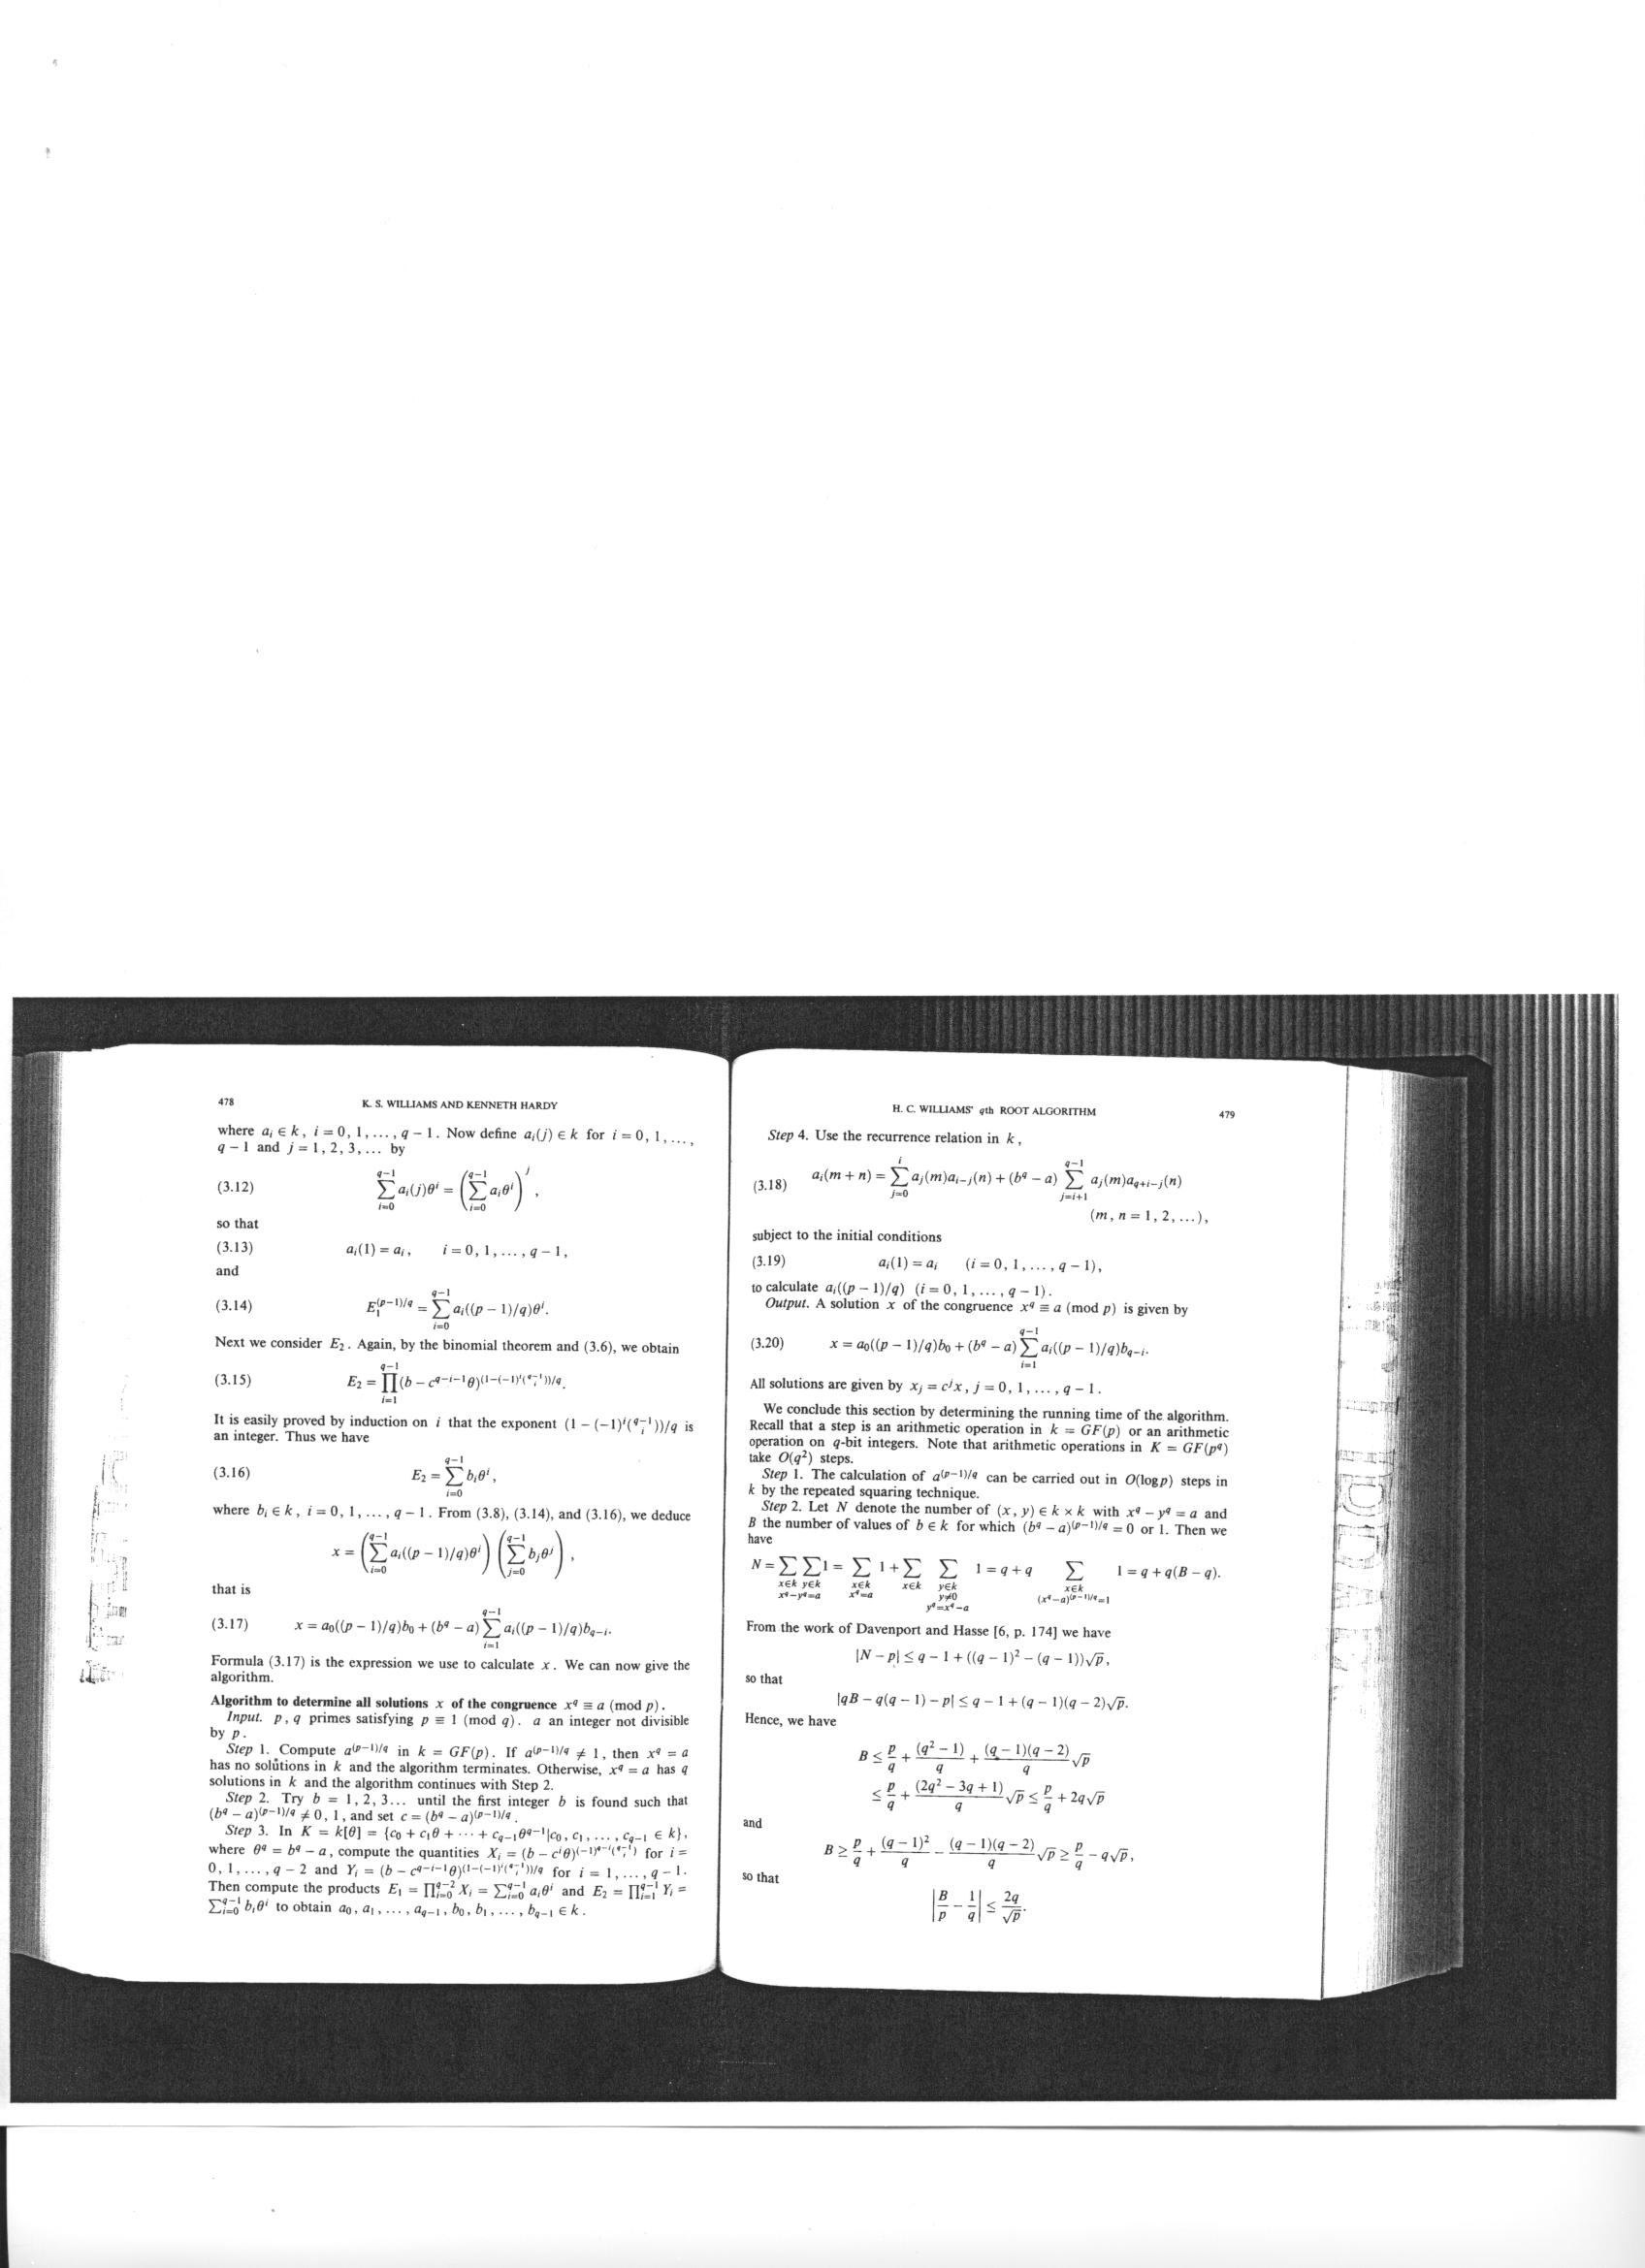 478
K. S. WILLIAMS AND KENNETH HARDY
where a_i ∈ k, i = 0, 1, ..., q − 1. Now define a_i(j) ∈ k for i = 0, 1, ...,
q − 1 and j = 1, 2, 3, ... by
(3.12) ∑_{i=0}^{q−1} a_i(j)θ^i = (∑_{i=0}^{q−1} a_iθ^i)^j ,
so that
(3.13) a_i(1) = a_i, i = 0, 1, ..., q − 1,
and
(3.14) E_1^{(p−1)/q} = ∑_{i=0}^{q−1} a_i((p − 1)/q)θ^i.
Next we consider E_2. Again, by the binomial theorem and (3.6), we obtain
(3.15) E_2 = ∏_{i=1}^{q−1} (b − c^{q−i−1}θ)^{(1−(−1)^i(q−1 choose i))/q}.
It is easily proved by induction on i that the exponent (1 − (−1)^i(q−1 choose i))/q is
an integer. Thus we have
(3.16) E_2 = ∑_{i=0}^{q−1} b_iθ^i,
where b_i ∈ k, i = 0, 1, ..., q − 1. From (3.8), (3.14), and (3.16), we deduce
x = (∑_{i=0}^{q−1} a_i((p − 1)/q)θ^i) (∑_{j=0}^{q−1} b_jθ^j) ,
that is
(3.17) x = a_0((p − 1)/q)b_0 + (b^q − a) ∑_{i=1}^{q−1} a_i((p − 1)/q)b_{q−i}.
Formula (3.17) is the expression we use to calculate x. We can now give the
algorithm.
Algorithm to determine all solutions x of the congruence x^q ≡ a (mod p).
Input. p, q primes satisfying p ≡ 1 (mod q). a an integer not divisible
by p.
Step 1. Compute a^{(p−1)/q} in k = GF(p). If a^{(p−1)/q} ≠ 1, then x^q = a
has no solutions in k and the algorithm terminates. Otherwise, x^q = a has q
solutions in k and the algorithm continues with Step 2.
Step 2. Try b = 1, 2, 3... until the first integer b is found such that
(b^q − a)^{(p−1)/q} ≠ 0, 1, and set c = (b^q − a)^{(p−1)/q}.
Step 3. In K = k[θ] = {c_0 + c_1θ + ··· + c_{q−1}θ^{q−1}|c_0, c_1, ..., c_{q−1} ∈ k},
where θ^q = b^q − a, compute the quantities X_i = (b − c^iθ)^{(−1)^{q−i}(q−1 choose i)} for i =
0, 1, ..., q − 2 and Y_i = (b − c^{q−i−1}θ)^{(1−(−1)^i(q−1 choose i))/q} for i = 1, ..., q − 1.
Then compute the products E_1 = ∏_{i=0}^{q−2} X_i = ∑_{i=0}^{q−1} a_iθ^i and E_2 = ∏_{i=1}^{q−1} Y_i =
∑_{i=0}^{q−1} b_iθ^i to obtain a_0, a_1, ..., a_{q−1}, b_0, b_1, ..., b_{q−1} ∈ k.
H. C. WILLIAMS' qth ROOT ALGORITHM
479
Step 4. Use the recurrence relation in k,
(3.18) a_i(m + n) = ∑_{j=0}^{i} a_j(m)a_{i−j}(n) + (b^q − a) ∑_{j=i+1}^{q−1} a_j(m)a_{q+i−j}(n)
(m, n = 1, 2, ...),
subject to the initial conditions
(3.19) a_i(1) = a_i (i = 0, 1, ..., q − 1),
to calculate a_i((p − 1)/q) (i = 0, 1, ..., q − 1).
Output. A solution x of the congruence x^q ≡ a (mod p) is given by
(3.20) x = a_0((p − 1)/q)b_0 + (b^q − a) ∑_{i=1}^{q−1} a_i((p − 1)/q)b_{q−i}.
All solutions are given by x_j = c^jx, j = 0, 1, ..., q − 1.
We conclude this section by determining the running time of the algorithm.
Recall that a step is an arithmetic operation in k = GF(p) or an arithmetic
operation on q-bit integers. Note that arithmetic operations in K = GF(p^q)
take O(q^2) steps.
Step 1. The calculation of a^{(p−1)/q} can be carried out in O(log p) steps in
k by the repeated squaring technique.
Step 2. Let N denote the number of (x, y) ∈ k × k with x^q − y^q = a and
B the number of values of b ∈ k for which (b^q − a)^{(p−1)/q} = 0 or 1. Then we
have
N = ∑_{x∈k} ∑_{y∈k, x^q−y^q=a} 1 = ∑_{x∈k, x^q=a} 1 + ∑_{x∈k} ∑_{y∈k, y≠0, y^q=x^q−a} 1 = q + q ∑_{x∈k, (x^q−a)^{(p−1)/q}=1} 1 = q + q(B − q).
From the work of Davenport and Hasse [6, p. 174] we have
|N − p| ≤ q − 1 + ((q − 1)^2 − (q − 1))√p,
so that
|qB − q(q − 1) − p| ≤ q − 1 + (q − 1)(q − 2)√p.
Hence, we have
B ≤ p/q + (q^2 − 1)/q + (q − 1)(q − 2)/q √p
≤ p/q + (2q^2 − 3q + 1)/q √p ≤ p/q + 2q√p
and
B ≥ p/q + (q − 1)^2/q − (q − 1)(q − 2)/q √p ≥ p/q − q√p,
so that
|B/p − 1/q| ≤ 2q/√p.